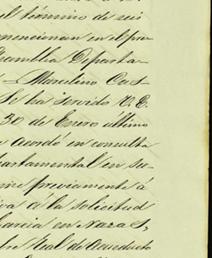 el término de seis
mencionan en el pre
Asamblea Departa-
Marcelino Cas-
Se ha servido V. E.
30 de Enero último
acordó en consulta
partamental en su-
previamente á
a la solicitud
Garcia en Naza
Real de Acueducto